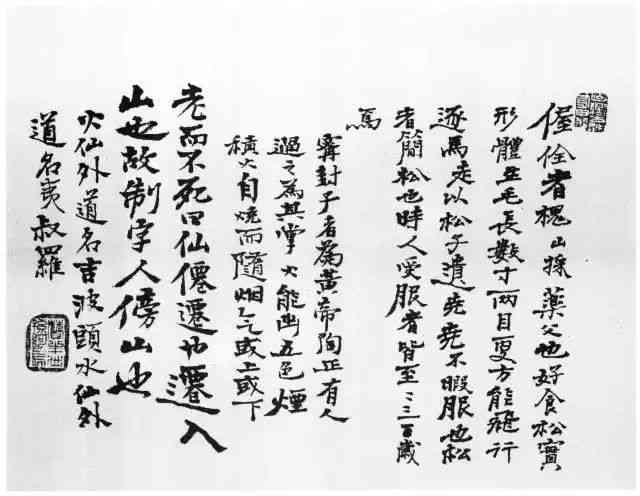 偓佺者槐山採藥父也好食松實
形體生毛長数寸兩目更方能飛行
逐馬走以松子遺尭尭不暇服也松
者簡松也時人受服者皆至二三百歳
焉
甯封子者為黄帝陶正有人
過之為其掌火能出五色煙
積火自焼而隨烟气或上或下
老而不死曰仙僊遷也遷入
山也故制字人傍山也
火仙外道名吉波頭水仙外
道名夷叔羅